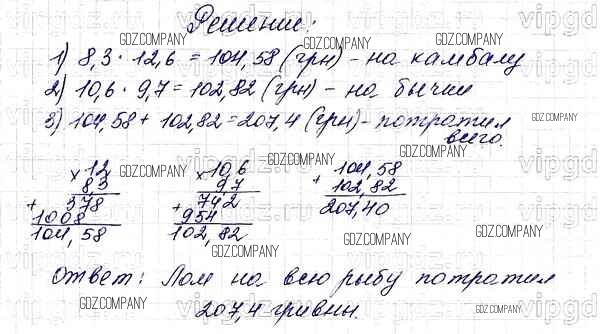 Решение:
1) 8,3 · 12,6 = 104,58 (грн) - на камбалу
2) 10,6 · 9,7 = 102,82 (грн) - на бычки
3) 104,58 + 102,82 = 207,4 (грн) - потратил
всего.
× 12
8,3
+ 378
1008
104,58
× 10,6
9,7
+ 742
954
102,82
+ 104,58
102,82
207,40
Ответ: Пом на всю рыбу потратил
207,4 гривны.
GDZ.COMPANY
GDZ.COMPANY
GDZ.COMPANY
GDZ.COMPANY
GDZ.COMPANY
GDZ.COMPANY
GDZ.COMPANY
GDZ.COMPANY
GDZ.COMPANY
GDZ.COMPANY